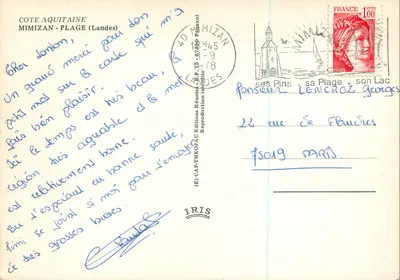 COTE AQUITAINE
MIMIZAN - PLAGE (Landes)
Cher tonton,
Un grand merci pour ton
petit mot sur la carte qui m'a
fais bien plaisir.
Ici le temps est très beau, la
région très agréable et la mer
est relativement bonne.
En t'espérant en bonne santé,
Mimi se joint à moi pour t'envoyer
de grosses bises
IRIS
(E) CAP-THEOJAC Editions
Reproduction interdite
40 MIMIZAN
LANDES
MIMIZAN
ses Pins sa Plage son Lac
FRANCE
1,00
Monsieur LENCROZ Georges
22 rue de
75019 PARIS